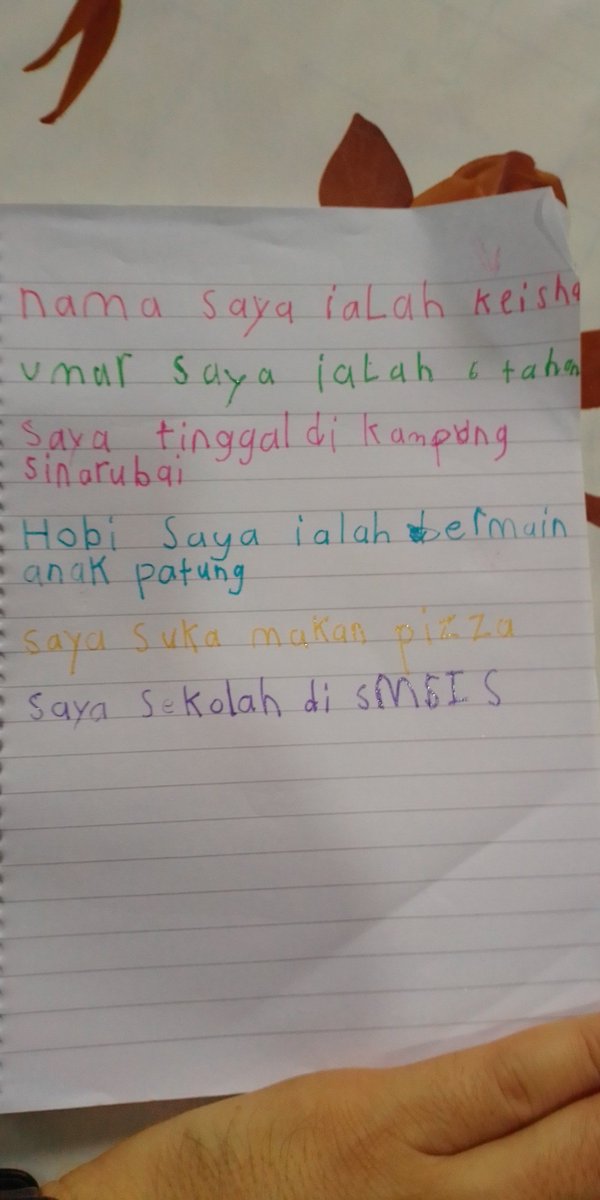 nama saya iaLah keisha
umur saya iaLah 6 tahun
Saya tinggal di kampung
sinarubai
Hobi Saya ialah bermain
anak patung
saya suka makan pizza
saya sekolah di SMSIS